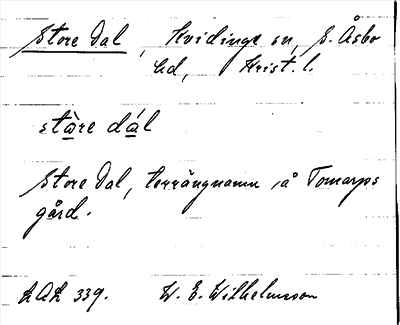 Store Dal, Kvidinge sn, S. Åsbo
hd, Krist. l.
stàre dál
Store Dal, terrängnamn på Tomarps
gård.
LAL 339. W. E. Wilhelmsson